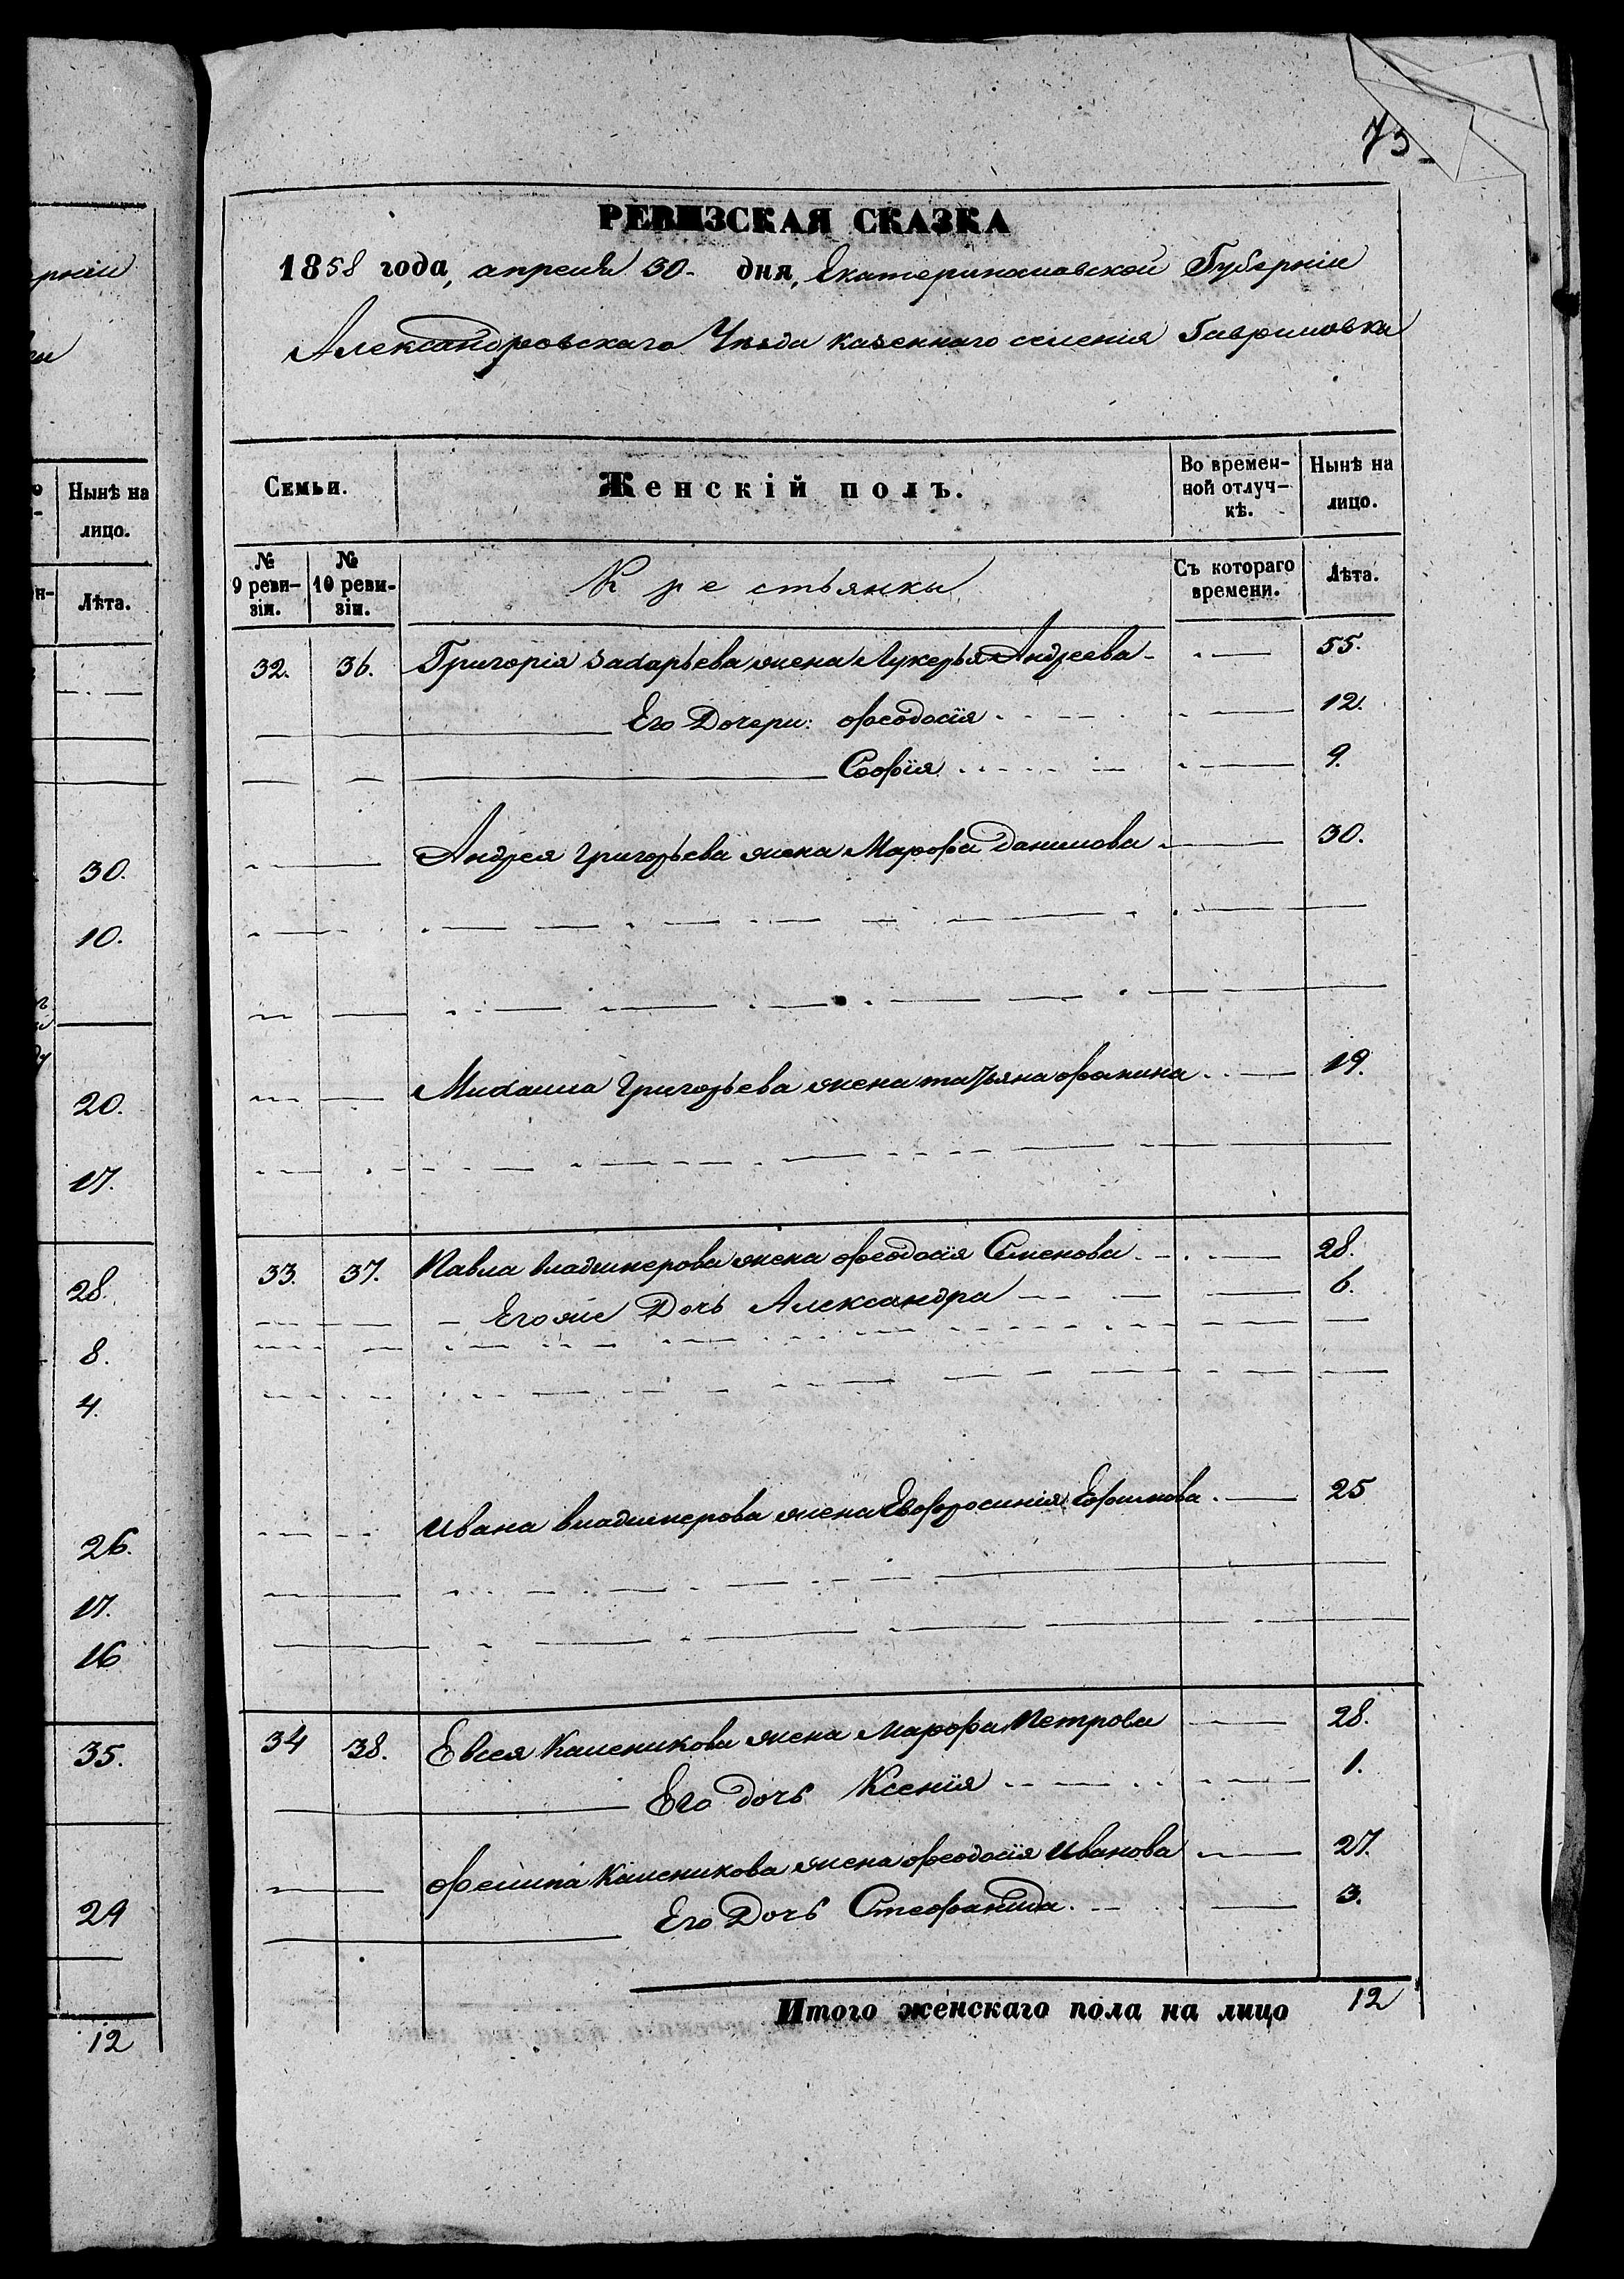 рніи
Нынѣ на
лицо.
Лѣта.
30.
10.
20.
17.
28.
8.
4.
26.
17.
16
35.
29
12
75
РЕВИЗСКАЯ СКАЗКА
1858 года, апреля 30- дня, Екатеринославской Губерніи
Александровскаго Уѣзда казеннаго селенія Гавриловка
Семьи.
Женскій полъ.
Во времен-
ной отлуч-
кѣ.
Нынѣ на
лицо.
№
9 реви-
зіи.
№
10 реви-
зіи.
Крестьянки
Съ котораго
времени.
Лѣта.
32. 36. Григорія Захарьева жена Лукерья Андреева 55.
Его Дочери: Феодосія 12.
Софія 9.
Андрея Григорьева жена Марфа Данилова 30.
Михаила Григорьева жена татьяна фомина 19.
33. 37. Павла владимерова жена феодосія Семенова 28.
Егоже Дочь Александра 6.
Ивана владимерова жена Евфросинія Ефимова 25
34 38. Евсея Калсникова жена марфа Петрова 28.
Его дочь Ксенія 1.
филипа Калсникова жена феодосія Иванова 27.
Его Дочь Стефанида 3.
Итого женскаго пола на лицо 12